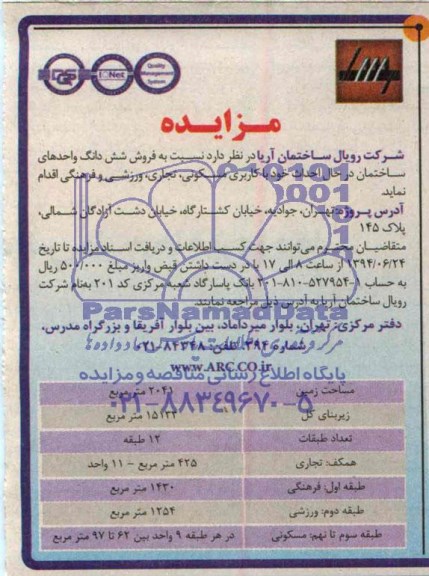 Quality
Management
System
IQNet
مزایده
شرکت رویال ساختمان آریا در نظر دارد نسبت به فروش شش دانگ واحدهای
ساختمان در حال احداث خود با کاربری مسکونی، تجاری، ورزشی و فرهنگی اقدام
نماید
آدرس پروژه: تهران، جوادیه، خیابان کشتارگاه، خیابان دشت آزادگان شمالی،
پلاک ۱۴۵
متقاضیان محترم می‌توانند جهت کسب اطلاعات و دریافت اسناد مزایده تا تاریخ
۱۳۹۴/۰۶/۲۴ از ساعت ۸ الی ۱۷ با در دست داشتن فیض واریز مبلغ ۵۰۰/۰۰۰ ریال
به حساب ۱-۵۲۷۹۵۴-۸۱۰-۲۰۱ بانک پاسارگاد شعبه مرکزی کد ۲۰۱ بنام شرکت
رویال ساختمان آریا به آدرس ذیل مراجعه نمایند.
ParsNamadData
دفتر مرکزی: تهران، بلوار میرداماد، بین بلوار آفریقا و بزرگراه مدرس،
شماره ۳۹۴ تلفن: ۸۴۳۴۸-۰۲۱
www.ARC.CO.ir
پایگاه اطلاع رسانی مناقصه و مزایده
۰۲۱-۸۸۳۴۹۶۷۰-۵
مساحت زمین ۲۰۴۱ متر مربع
زیربنای کل ۱۵۱۳۳ متر مربع
تعداد طبقات ۱۲ طبقه
همکف: تجاری ۴۲۵ متر مربع - ۱۱ واحد
طبقه اول: فرهنگی ۱۴۳۰ متر مربع
طبقه دوم: ورزشی ۱۲۵۴ متر مربع
طبقه سوم تا نهم: مسکونی در هر طبقه ۹ واحد بین ۶۲ تا ۹۷ متر مربع